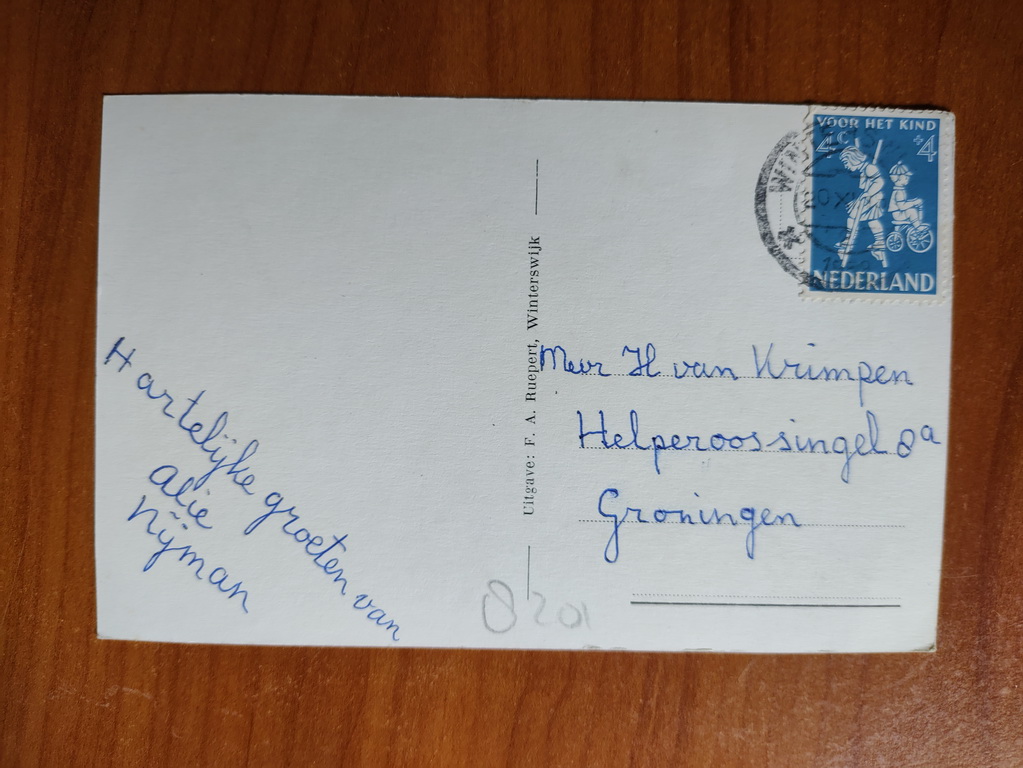 VOOR HET KIND
4c +4
NEDERLAND
Hartelijke groeten van
Alie
Nijman
Uitgave: F. A. Ruepert, Winterswijk
Mevr H van Krimpen
Helperoossingel 8a
Groningen
8201